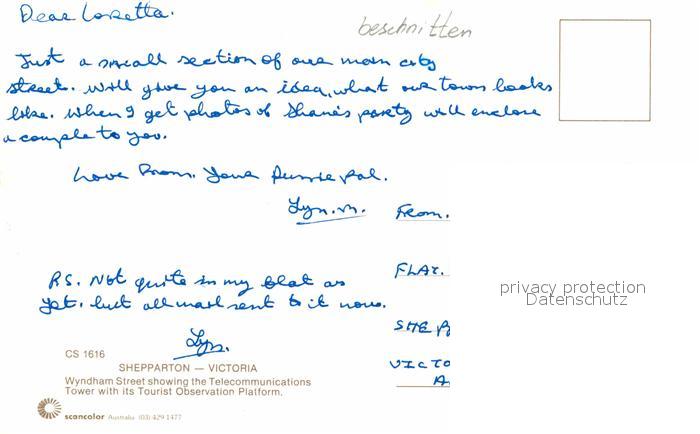 Dear Loretta.
beschnitten
Just a small section of our main city
street. Will give you an idea, what our town looks
like. When I get photos of Shane's party will enclose
a couple to you.
Love From. Your Aussie Pal.
Lyn. M.
From.
PS. Not quite in my flat as
yet, but all mail sent to it now.
Lyn.
FLAT.
SHEP
VICTO
A
privacy protection
Datenschutz
CS 1616
SHEPPARTON — VICTORIA
Wyndham Street showing the Telecommunications
Tower with its Tourist Observation Platform.
scancolor Australia (03) 429 1477